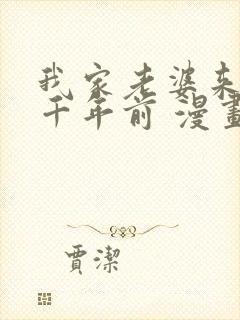 我家老婆来
千年前 漫畫
賈潔